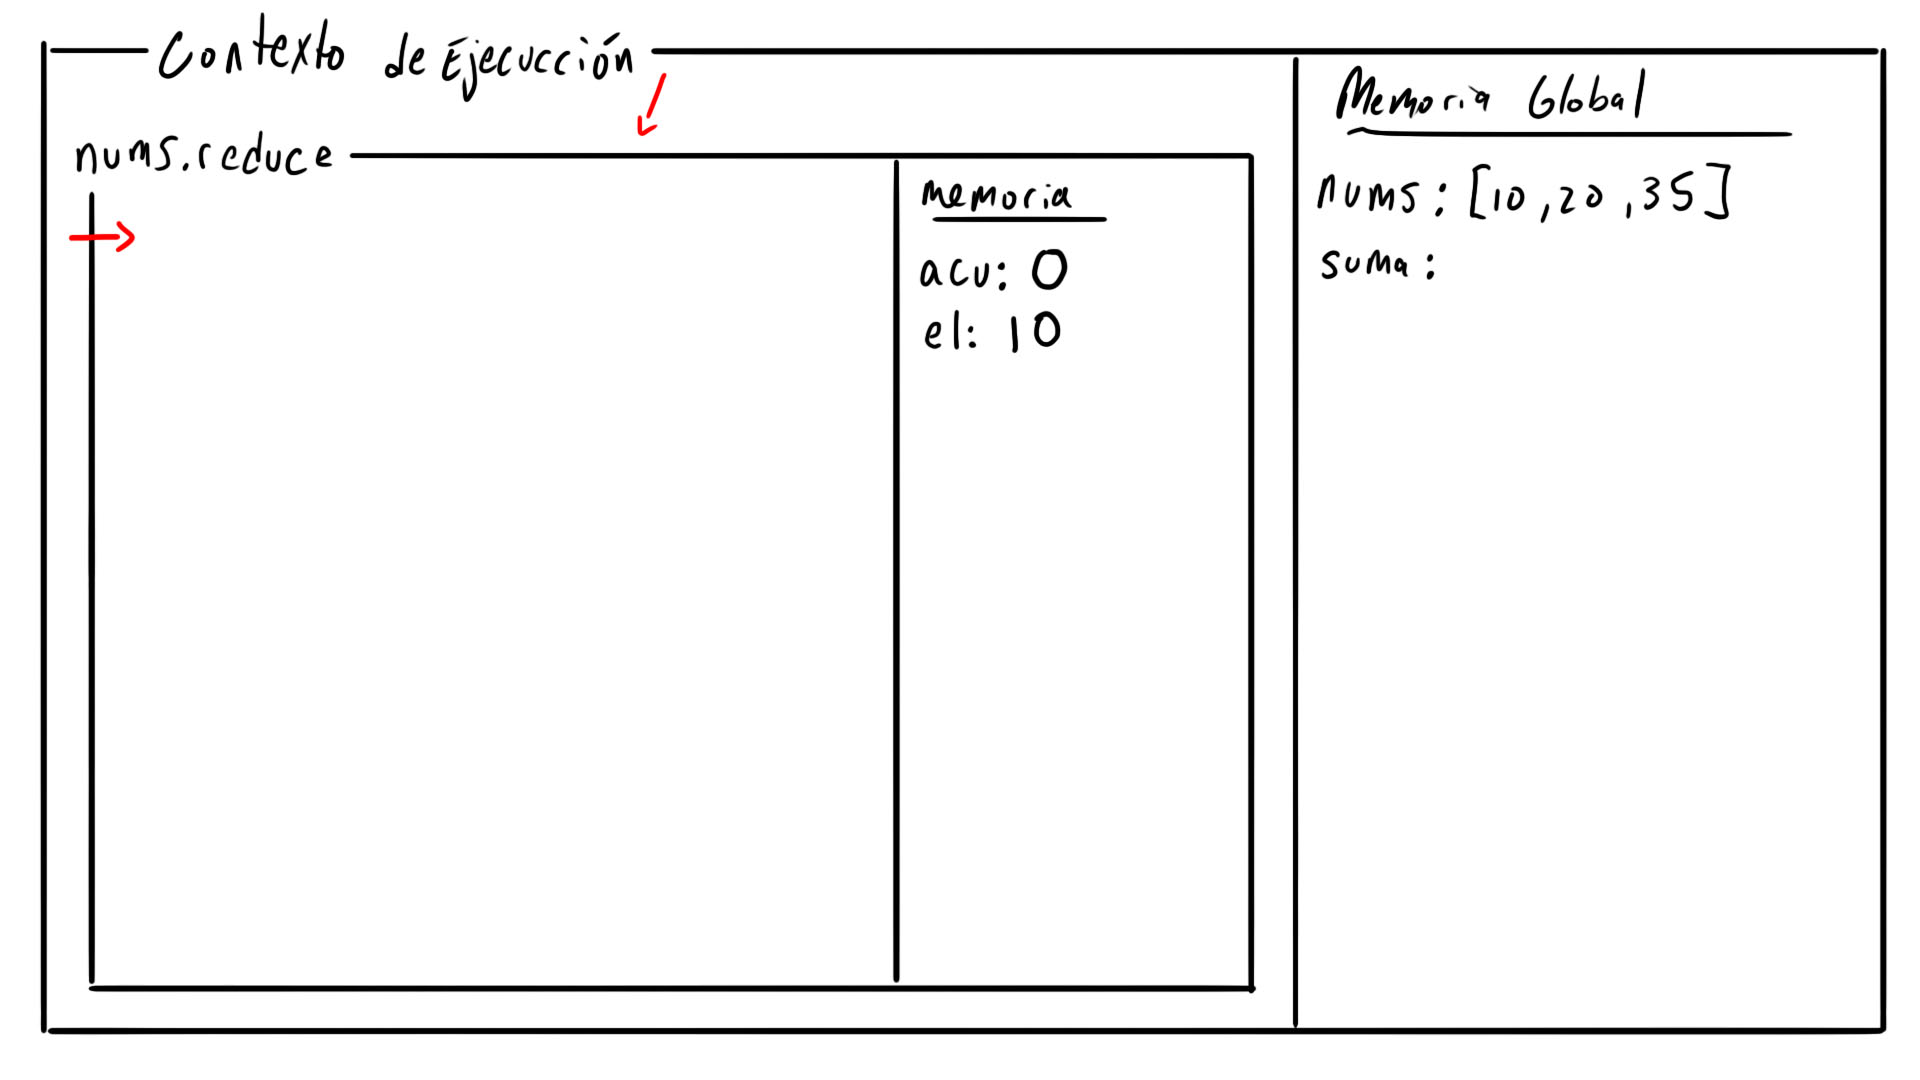 Contexto de Éjecucción
nums.reduce
memoria
acu: 0
el: 10
Memoria Global
nums: [10,20,35]
suma: